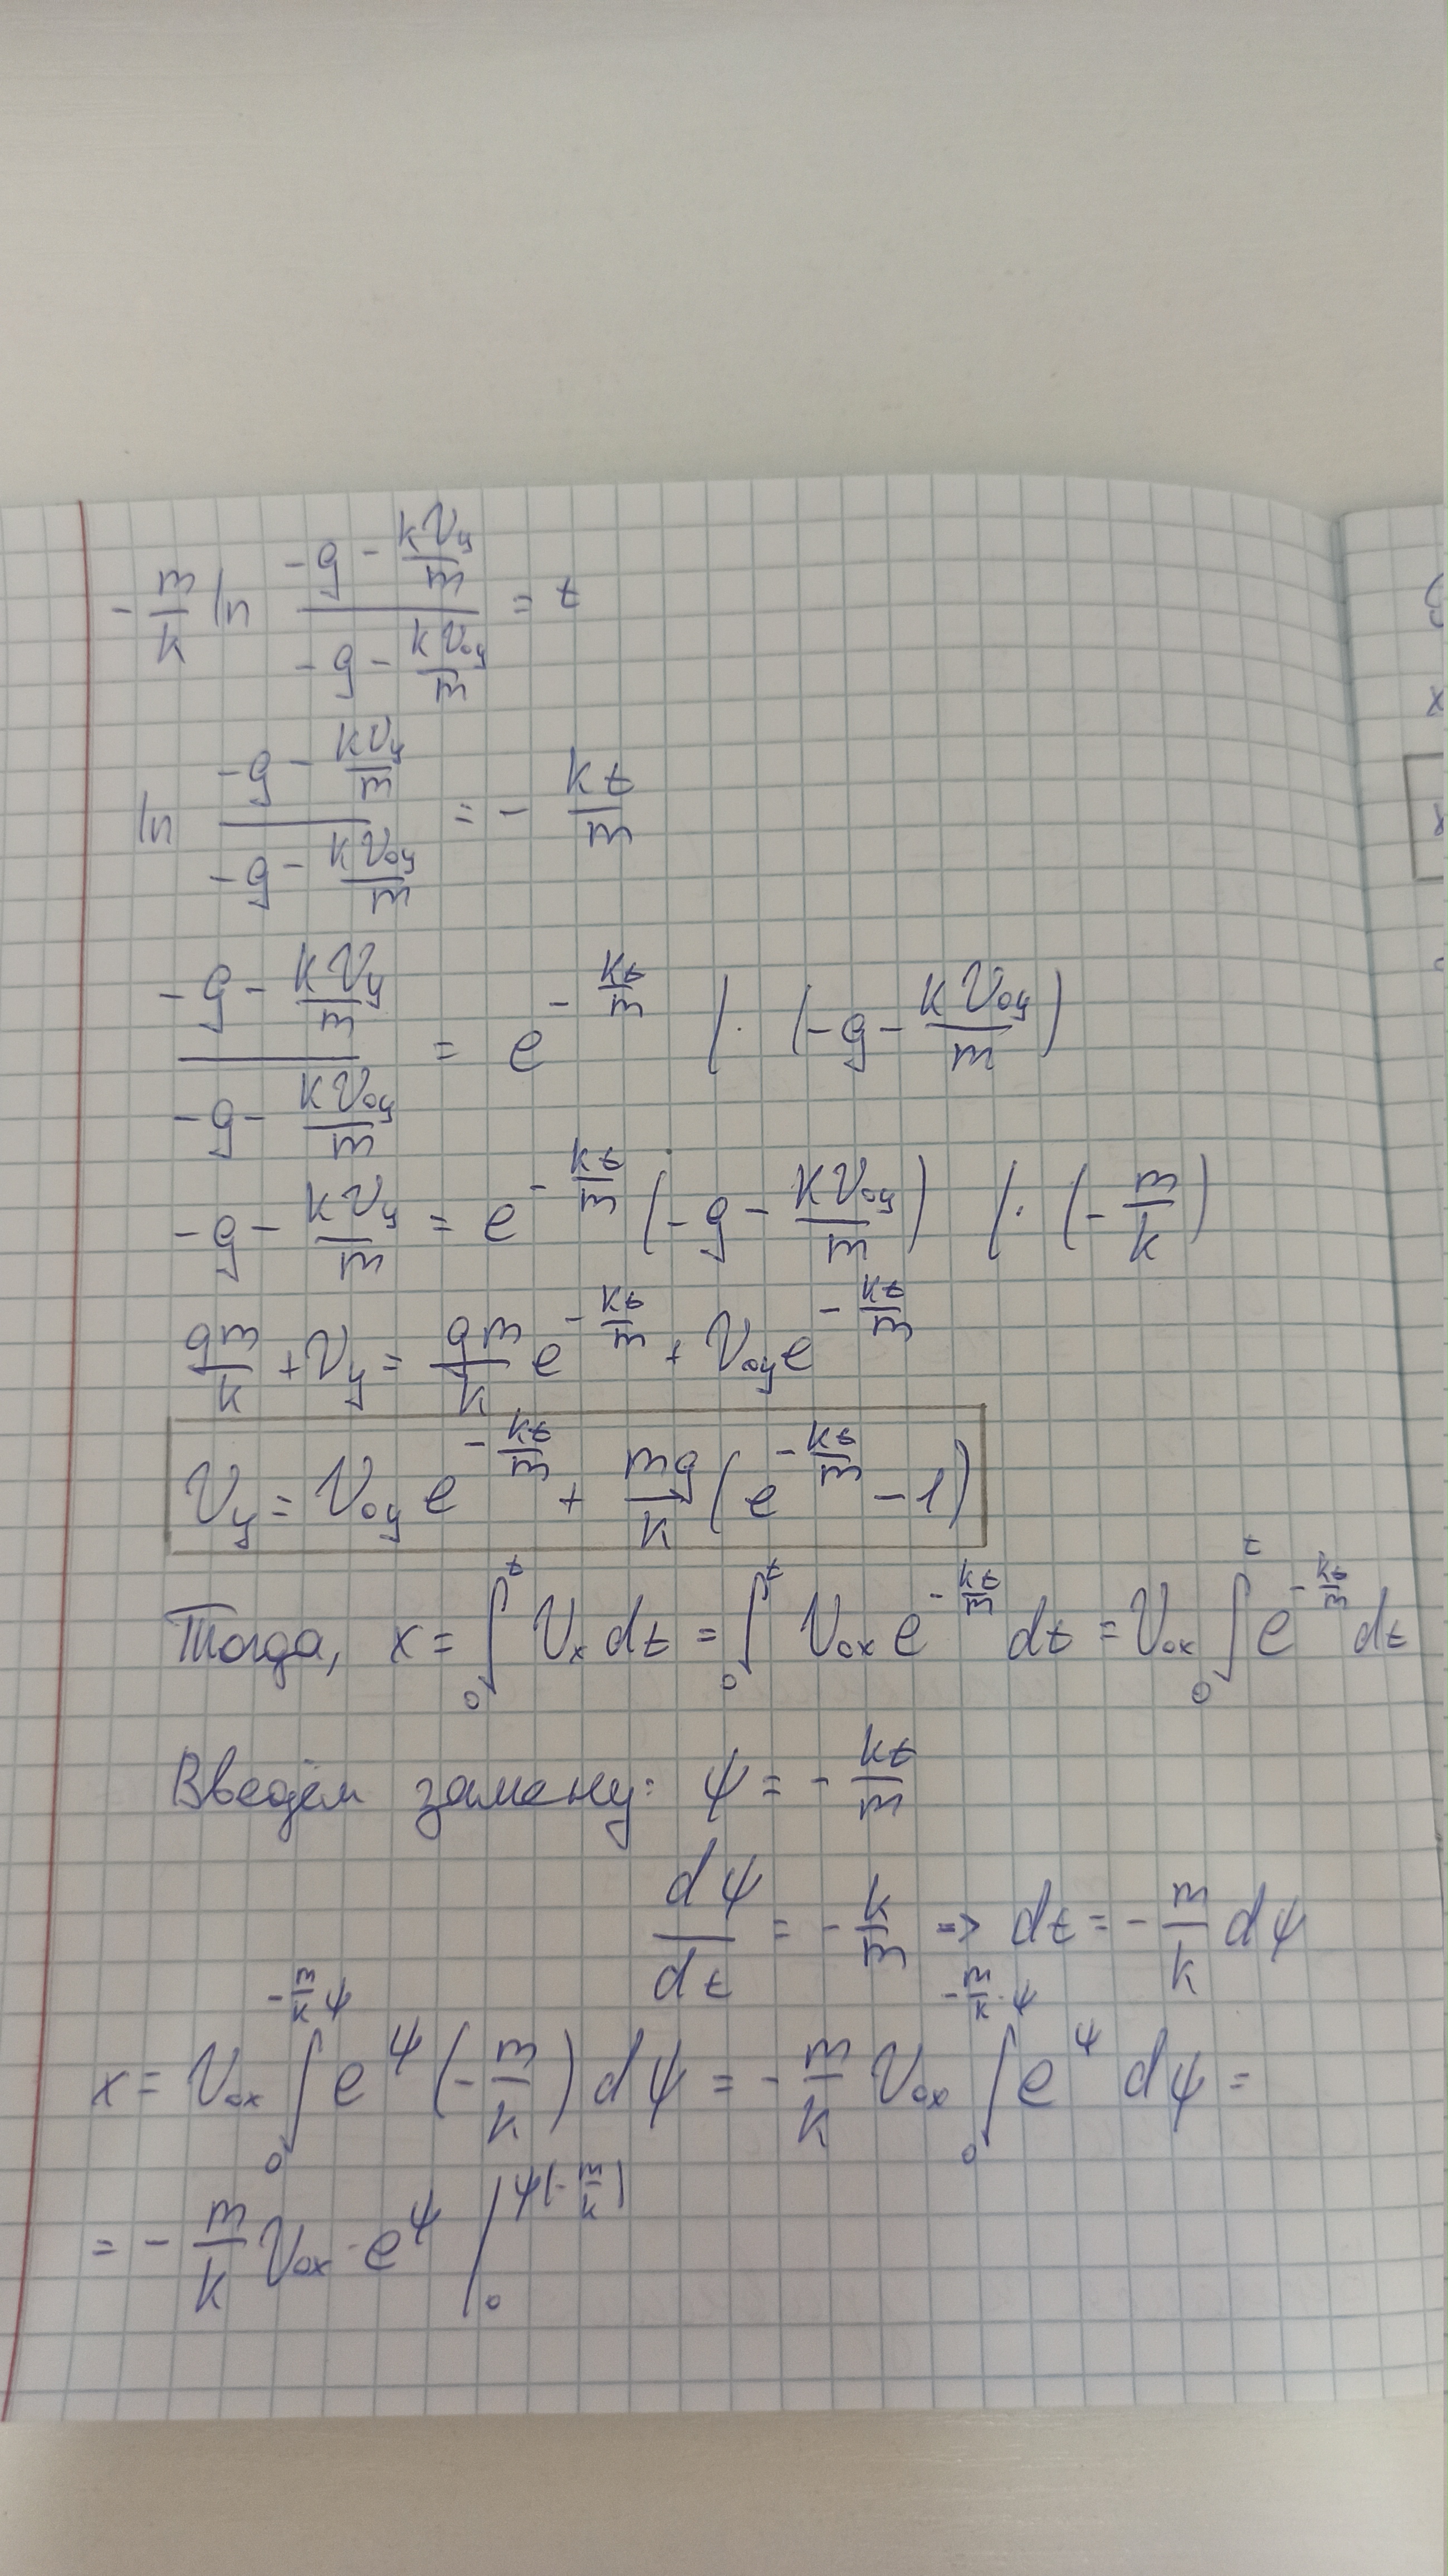 -\frac{m}{k} \ln \frac{-g - \frac{k V_y}{m}}{-g - \frac{k V_{oy}}{m}} = t
\ln \frac{-g - \frac{k V_y}{m}}{-g - \frac{k V_{oy}}{m}} = - \frac{kt}{m}
\frac{-g - \frac{k V_y}{m}}{-g - \frac{k V_{oy}}{m}} = e^{-\frac{kt}{m}} / \cdot (-g - \frac{k V_{oy}}{m})
-g - \frac{k V_y}{m} = e^{-\frac{kt}{m}} (-g - \frac{k V_{oy}}{m}) / \cdot (-\frac{m}{k})
\frac{gm}{k} + V_y = \frac{gm}{k} e^{-\frac{kt}{m}} + V_{oy} e^{-\frac{kt}{m}}
V_y = V_{oy} e^{-\frac{kt}{m}} + \frac{mg}{k} (e^{-\frac{kt}{m}} - 1)
Тогда, x = \int_0^t V_x dt = \int_0^t V_{ox} e^{-\frac{kt}{m}} dt = V_{ox} \int_0^t e^{-\frac{kt}{m}} dt
Введём замену: ψ = - \frac{kt}{m}
\frac{dψ}{dt} = - \frac{k}{m} => dt = - \frac{m}{k} dψ
x = V_{ox} \int_0^{-\frac{m}{k} ψ} e^ψ (-\frac{m}{k}) dψ = - \frac{m}{k} V_{ox} \int_0^{-\frac{m}{k} \cdot ψ} e^ψ dψ =
= - \frac{m}{k} V_{ox} \cdot e^ψ /_0^{ψ(-\frac{m}{k})}